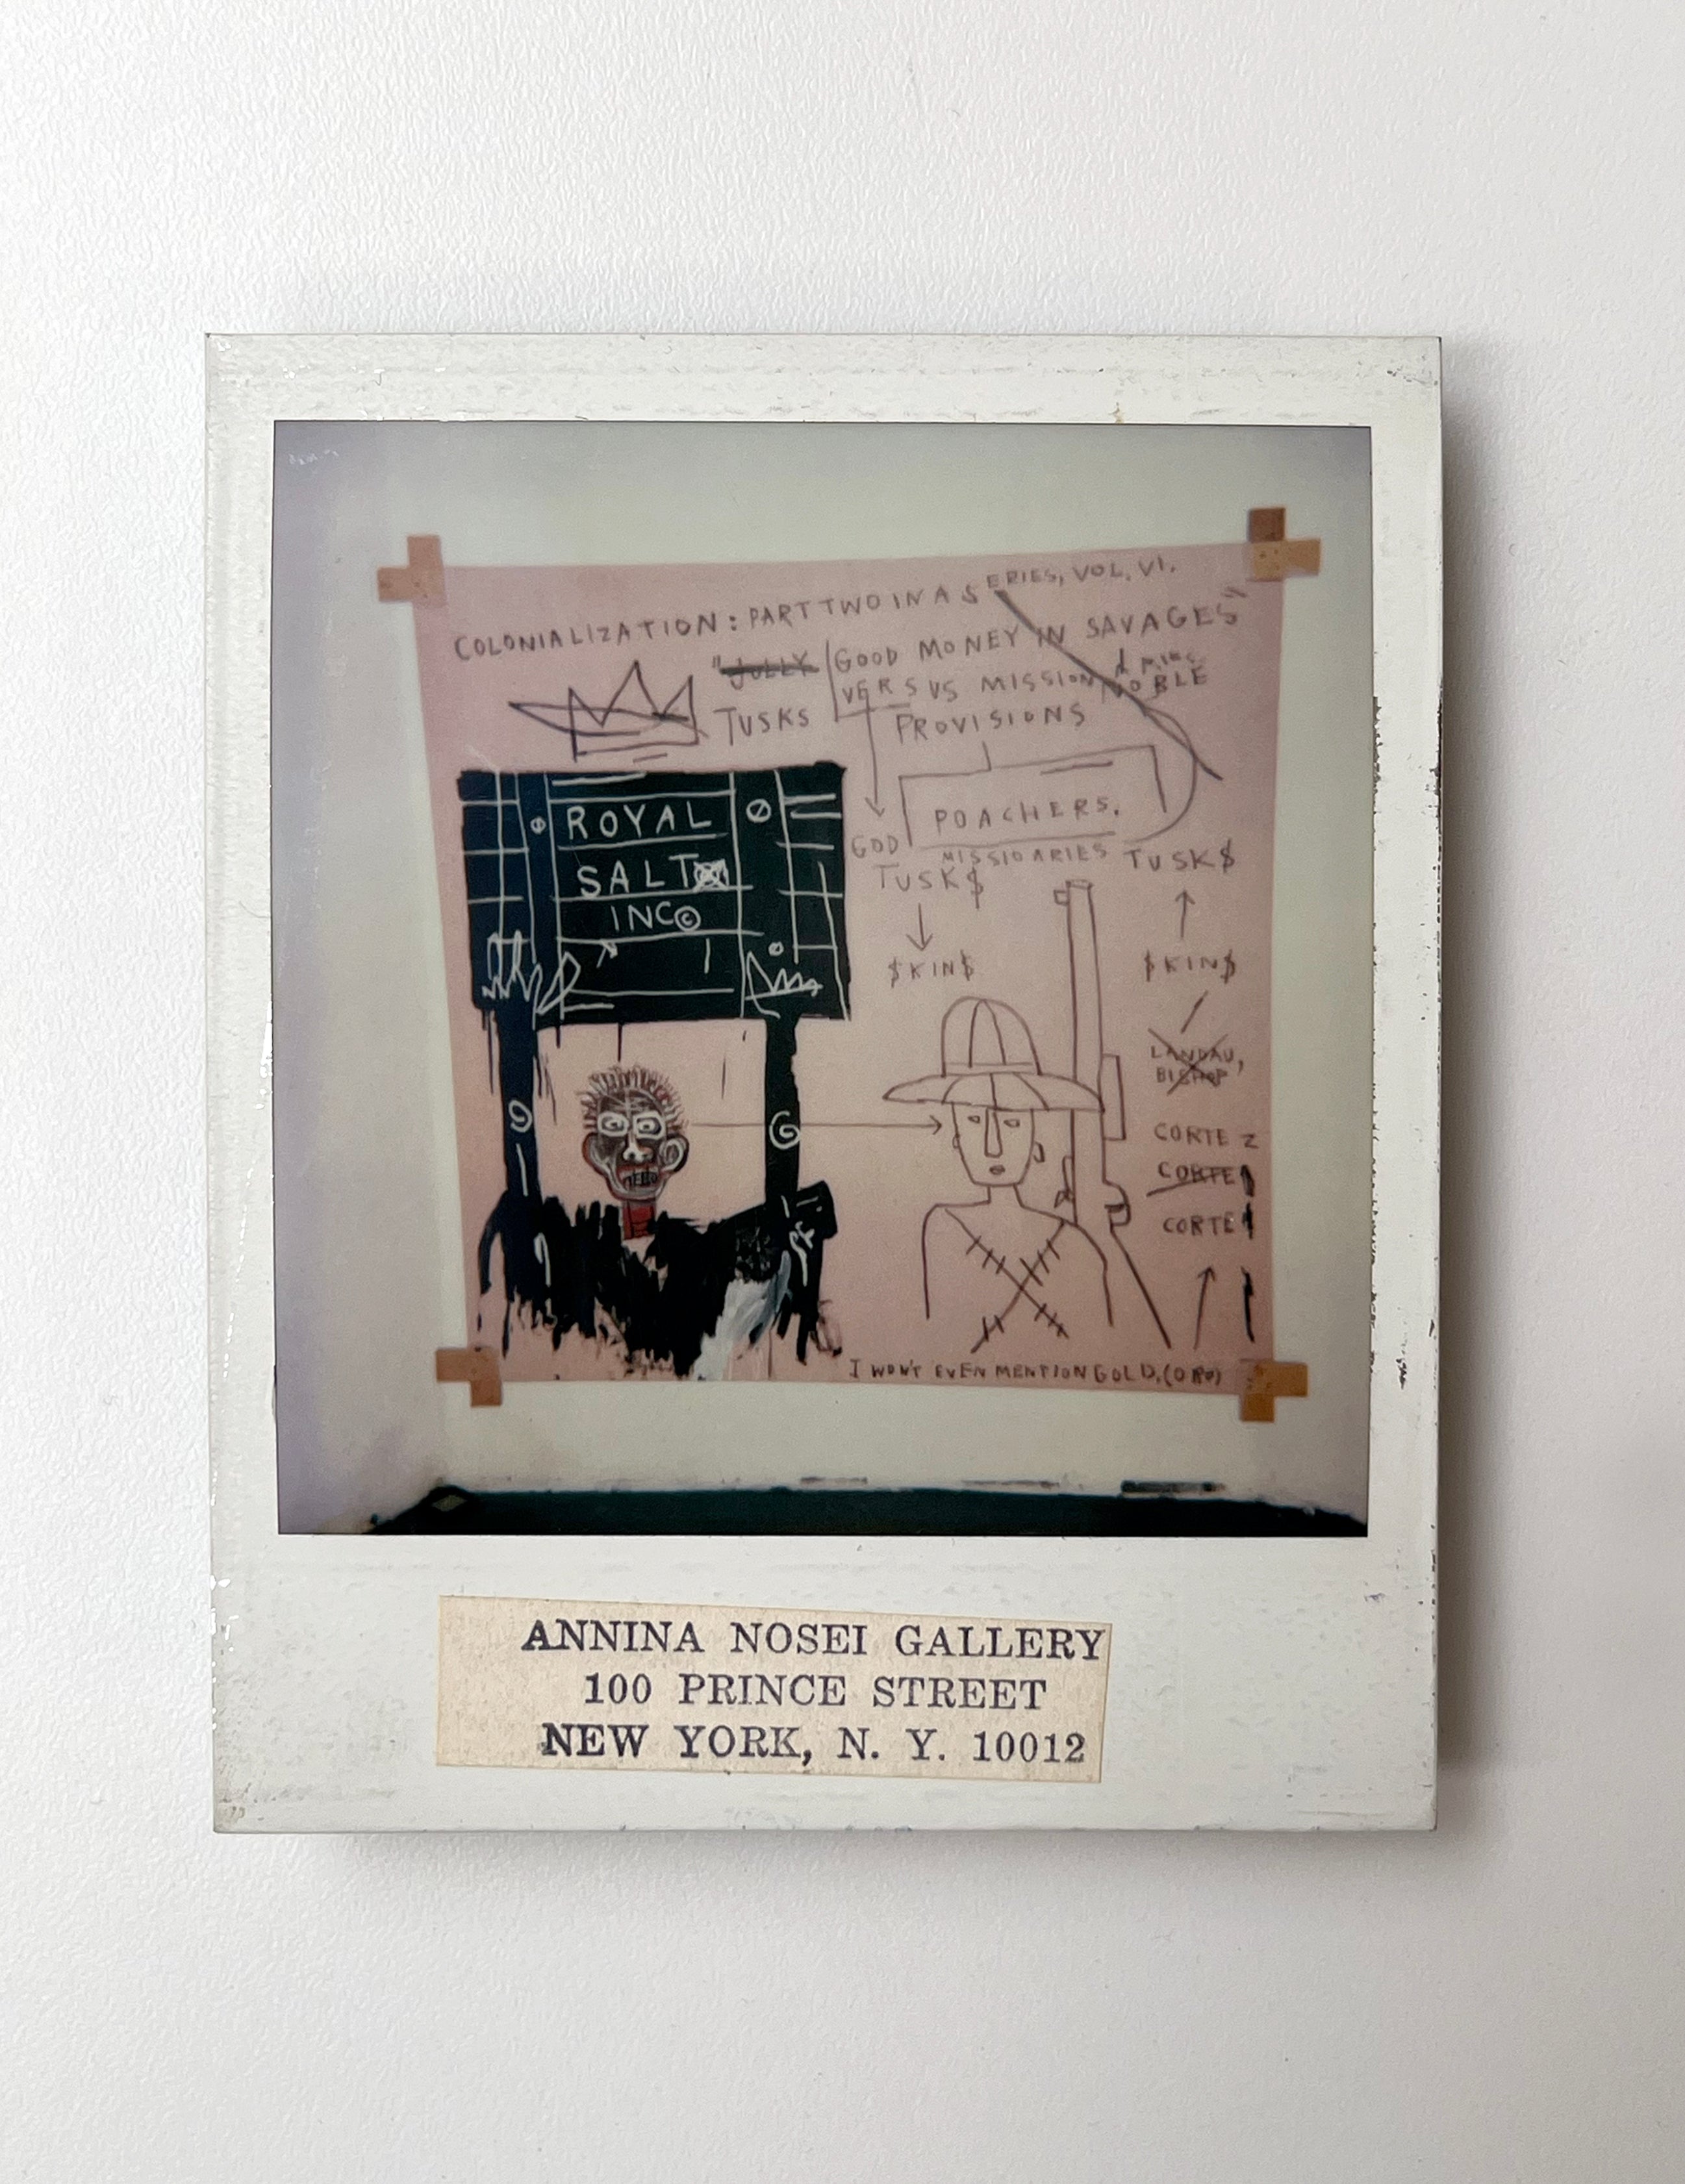 COLONIALIZATION: PART TWO IN A SERIES, VOL. VI.
"JOLLY GOOD MONEY IN SAVAGES"
VERSUS MISSION NOBLE
TUSKS
PROVISIONS
POACHERS.
GOD
MISSIONARIES
TUSK$
TUSK$
$KIN$
$KIN$
ROYAL
SALT
INC©
LANDAU,
BISHOP,
CORTEZ
CORTE
CORTE
I WON'T EVEN MENTION GOLD, (ORO)
ANNINA NOSEI GALLERY
100 PRINCE STREET
NEW YORK, N. Y. 10012